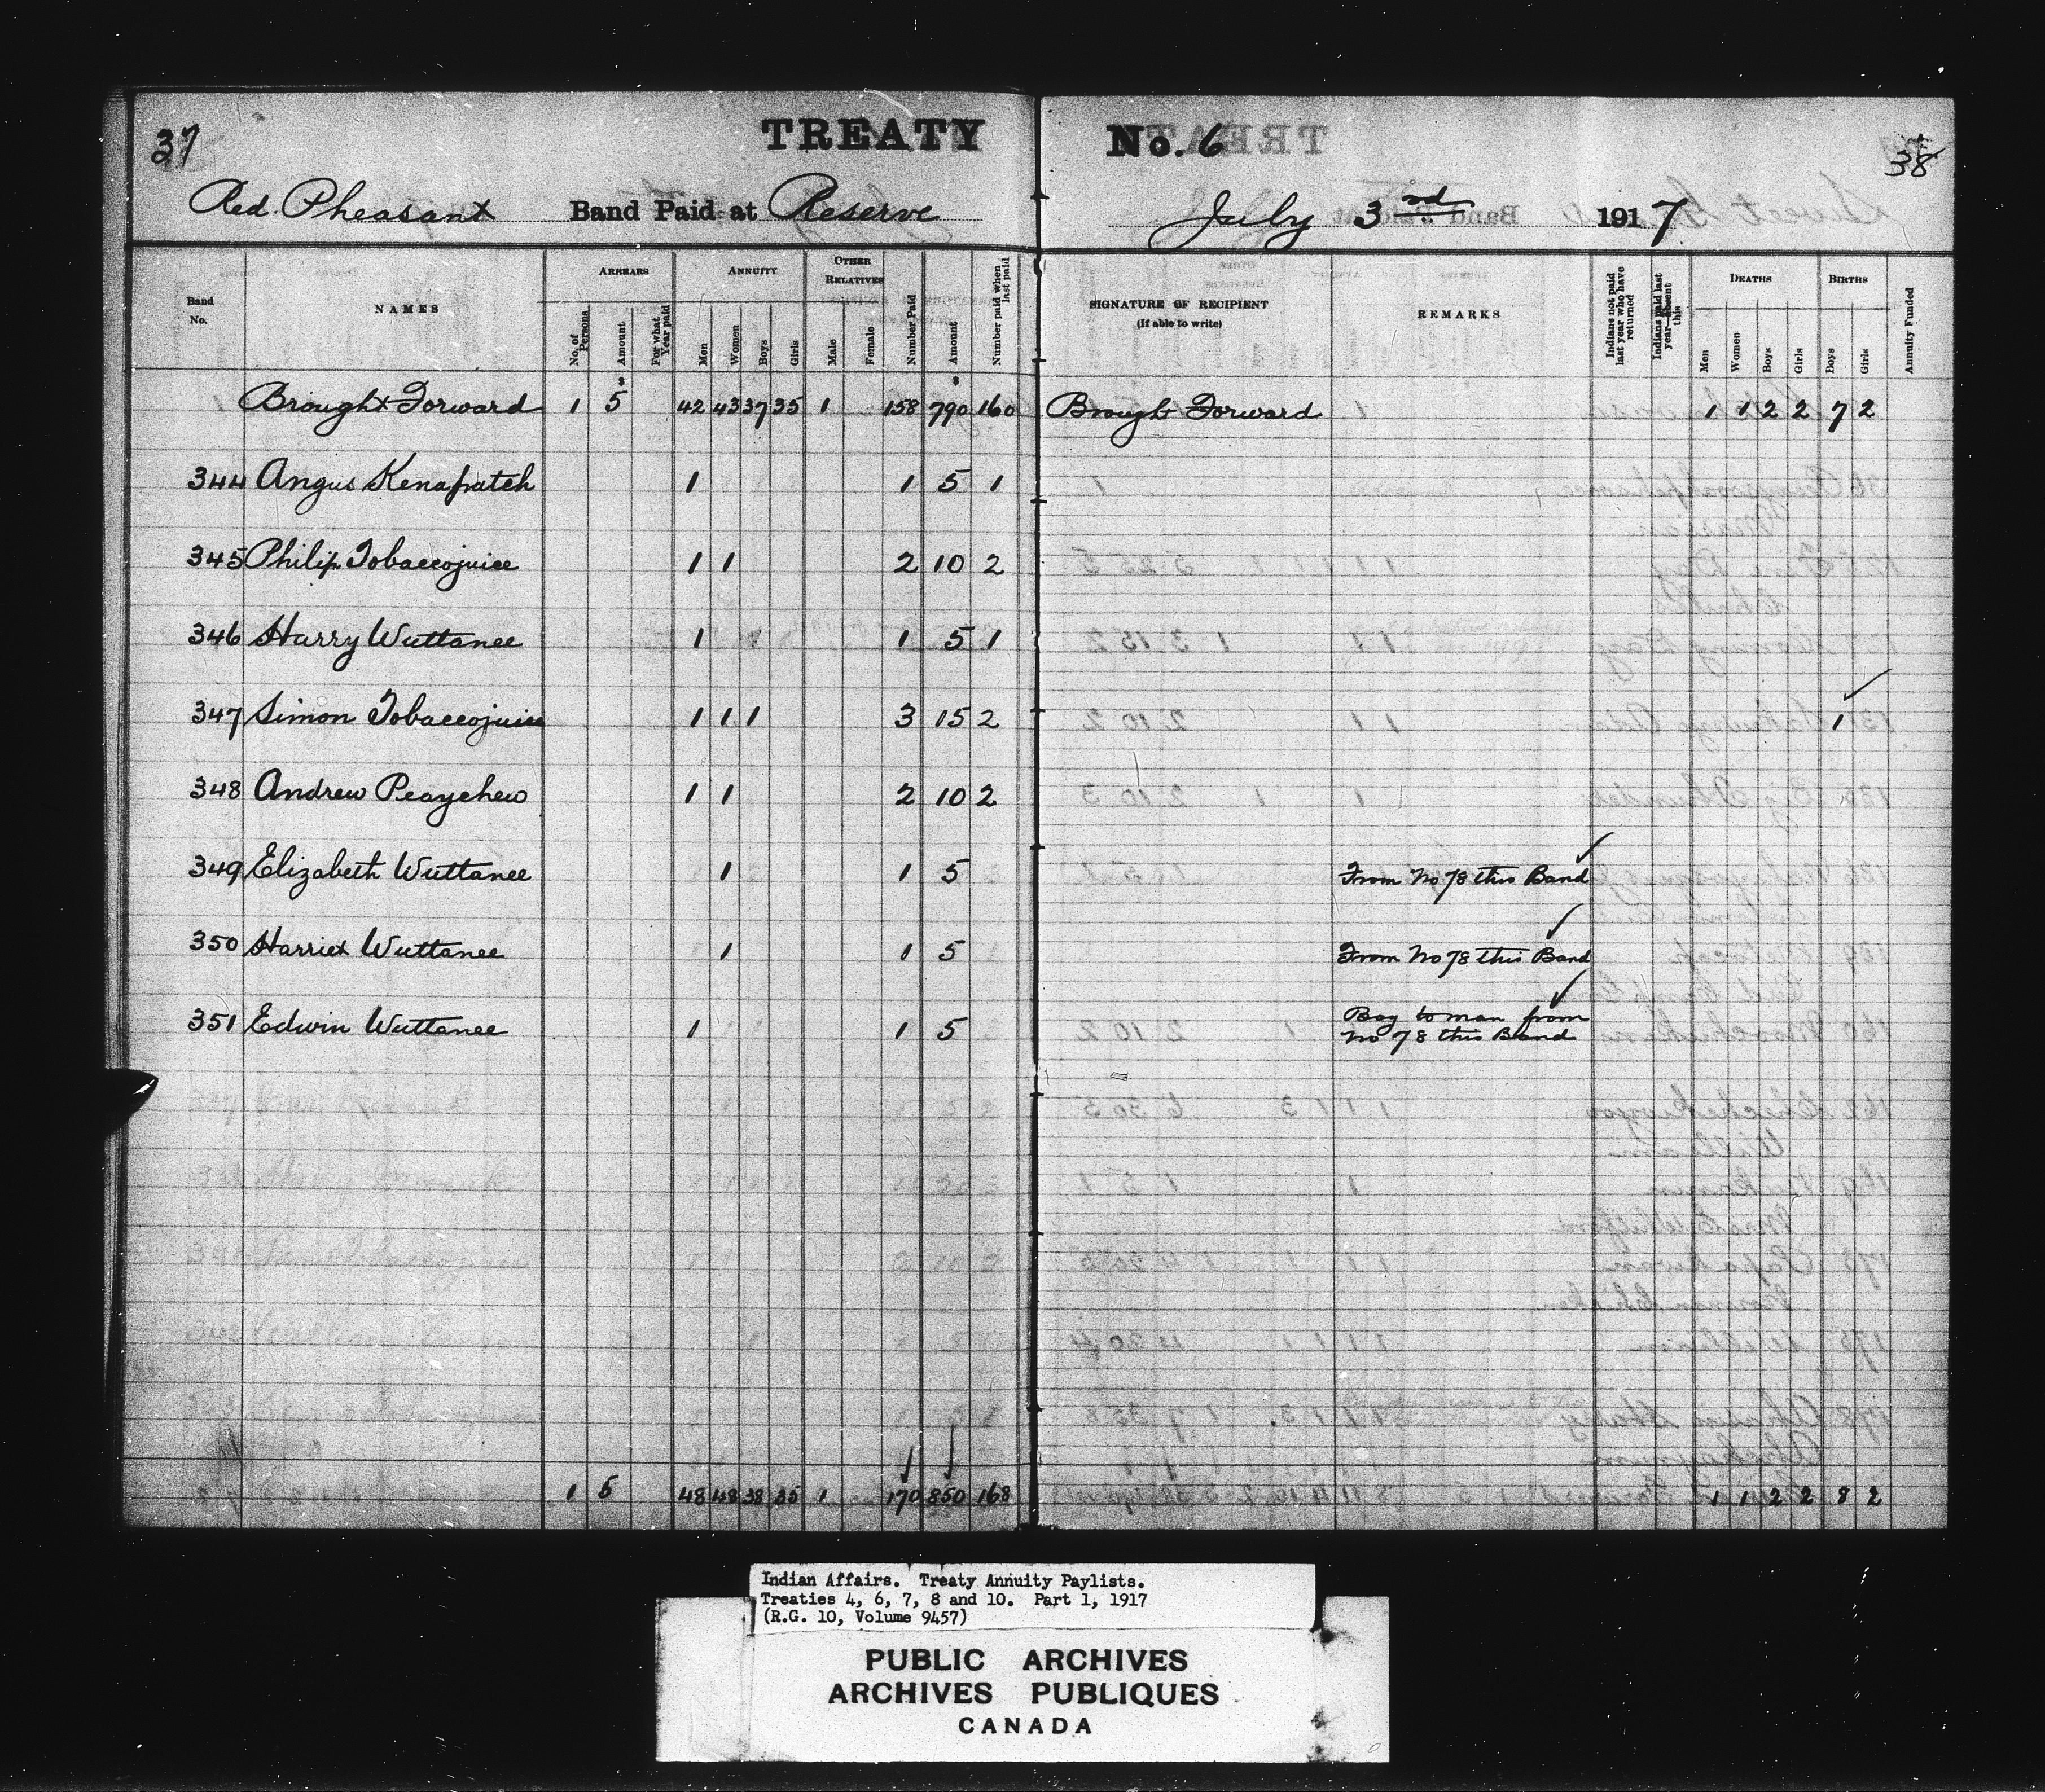 37
TREATY No. 6
38
Red Pheasant Band Paid at Reserve July 3rd 1917
Band No. NAMES ARREARS ANNUITY OTHER RELATIVES Number Paid Amount Number paid when last paid SIGNATURE OF RECIPIENT (If able to write) REMARKS Indians not paid last year who have returned Indians paid last year—absent this DEATHS BIRTHS Annuity Funded
No. of Persons Amount For what Year paid Men Women Boys Girls Male Female Men Women Boys Girls Boys Girls
Brought Forward 1 5 42 43 37 35 1 158 790 160 Brought Forward 1 1 2 2 7 2
344 Angus Kenapatch 1 1 5 1
345 Philip Tobaccojuice 1 1 2 10 2
346 Harry Wuttanee 1 1 5 1
347 Simon Tobaccojuice 1 1 1 3 15 2 1
348 Andrew Peaychew 1 1 2 10 2
349 Elizabeth Wuttanee 1 1 5 From No 78 this Band
350 Harriet Wuttanee 1 1 5 From No 78 this Band
351 Edwin Wuttanee 1 1 5 Boy to man from
No 78 this Band
1 5 48 48 38 35 1 170 850 168 1 1 2 2 8 2
Indian Affairs. Treaty Annuity Paylists.
Treaties 4, 6, 7, 8 and 10. Part 1, 1917
(R.G. 10, Volume 9457)
PUBLIC ARCHIVES
ARCHIVES PUBLIQUES
CANADA